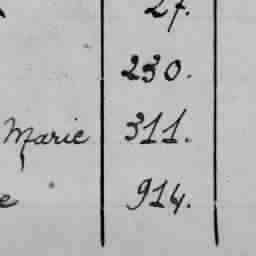 27.
230.
Marie 311.
e 914.